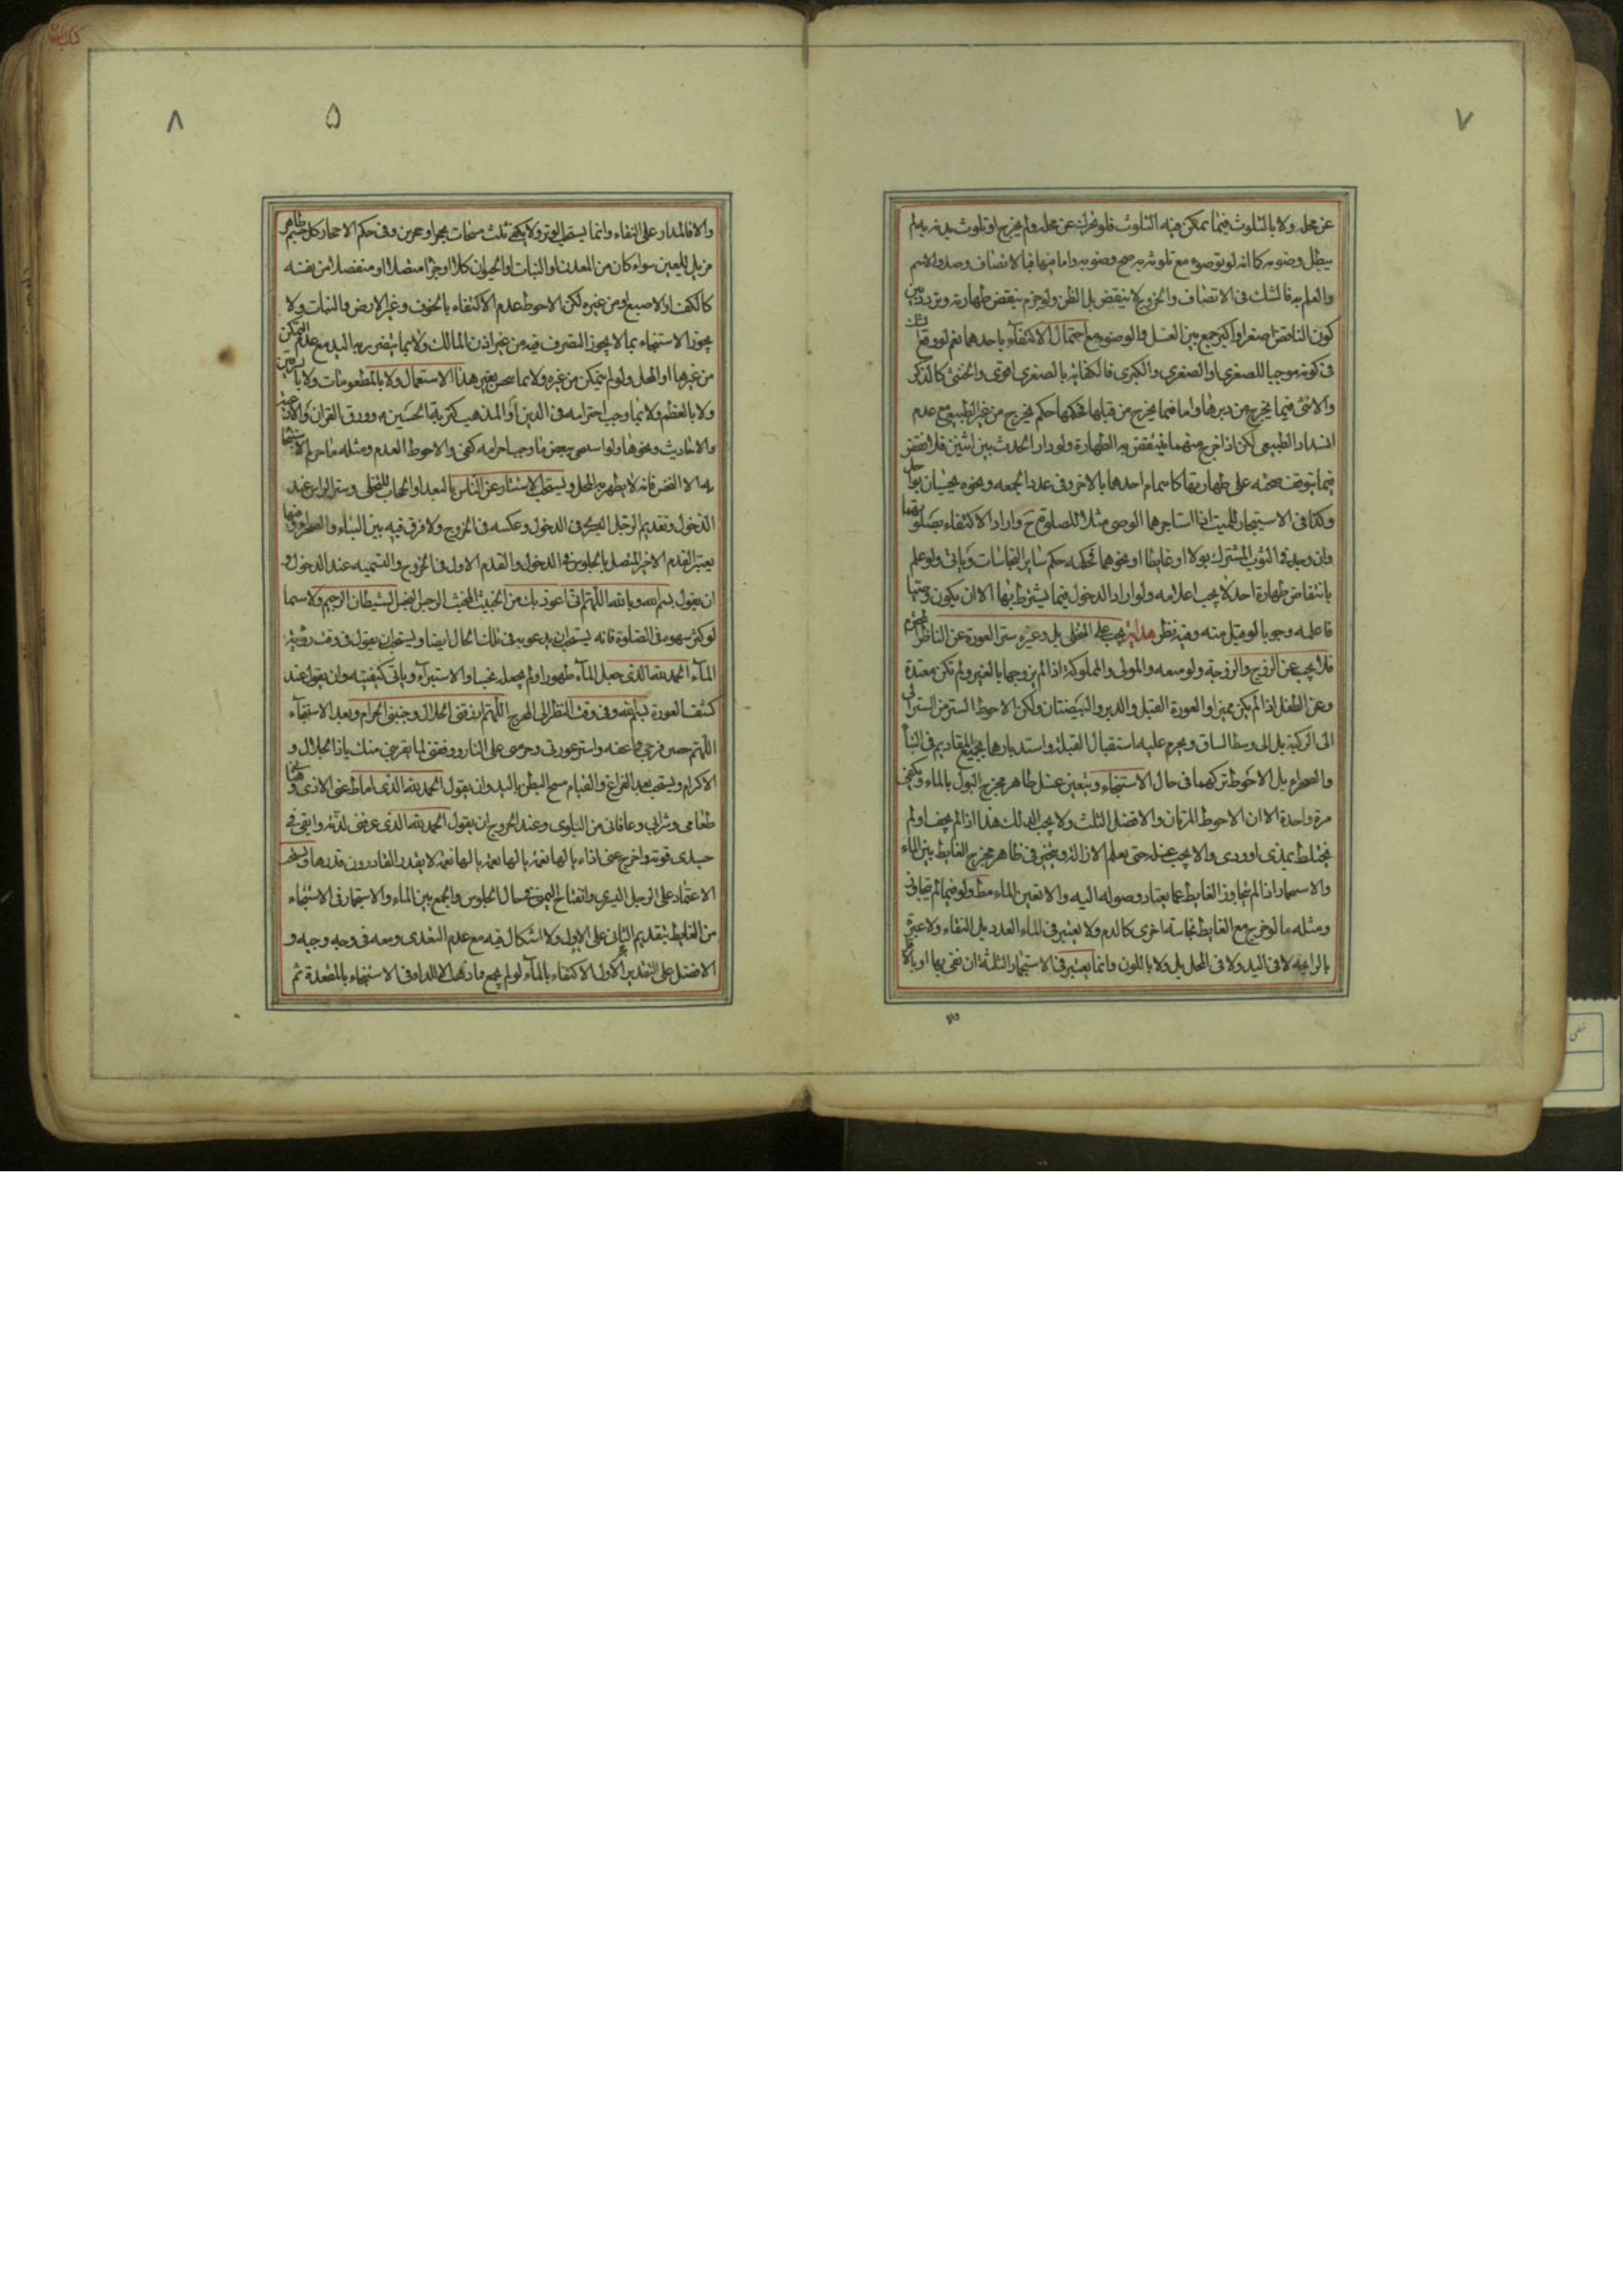 ٧
عن محله ولا بالتلوث فيما يمكن فيه التلوث فلو تحرك عن محله ولم يخرج او تلوث بدنه به لم
يبطل وضوئه كما انه لو توضوء مع تلوثه به صح وضوئه واما فيها فبالاتصاف وصدق الاسم
والعلم به فالشك فى الاتصاف والخروج لا ينقض بل الظن ولو جزم بنقض طهارته وتردد بين
كون الناقض اصغر او اكبر جمع بين الغسل والوضوء مع احتمال الاكتفاء باحدهما نعم لو وقع شك
فى كونه موجبا للصغرى او الصغرى والكبرى فالكفاية بالصغرى اقوى والخنثى كالذكر
والانثى فيما يخرج من دبرها واما فيما يخرج من قبلها فحكمها حكم يخرج من غير الطبيعى مع عدم
انسداد الطبيعى لكن اذا خرج منهما فينقض به الطهارة ولو دار الحدث بين اثنين فلا نقض
فيما يتوقف صحته على طهارتها كاتمام احدهما بالاخر وفى عدد الجمعه ونحوه يحسبان بواحد
وكذا فى الاستيجار للميت اذا استاجرهما الوصى مثلا للصلوة ح واراد الاكتفاء بصلوتهما
وان وجد فى الثوب المشترك بولا او غايطا او نحوهما فحكمه حكم ساير النجاسات وياتى ولو علم
بانتقاض طهارة احد لا يجب اعلامه ولو اراد الدخول فيما يشترط بها الا ان يكون
فاعلمه وجوبا لو قبل منه وفيه نظر هداية يجب على المتخلى بل وغيره ستر العورة عن الناظر
فلا يجب عن الزوج والزوجة ولو متعه والمولى والمملوكة اذا لم يزوجها بالغير ولم تكن معتدة
وعن الطفل اذا لم يكن مميزا والعورة القبل والدبر والبيضتان ولكن الاحوط الستر من السرة
الى الركبة بل الى وسط الساق ويحرم عليه استقبال القبلة واستدبارها بجميع المقاديم فى البنا
والصحراء بل الاحوط تركهما فى حال الاستنجاء ويتعين غسل ظاهر مخرج البول بالماء ويكفى
مرة واحدة الا ان الاحوط المرتان والافضل الثلث ولا يجب الدلك هذا اذا لم يجف او لم
يختلط بمذى او ودى والا يجب غسله حتى يعلم الازالة ويتخير فى ظاهر مخرج الغايط بين الماء
والاستجمار اذا لم يتجاوز الغايط عما يعتاد وصوله اليه والا تعين الماء مط ولو فيما لم يتجاوز
ومثله ما لو خرج مع الغايط نجاسة اخرى كالدم ولا يعتبر فى الماء العدد بل النقاء ولا عبرة
بالرايحه لا فى اليد ولا فى المحل بل ولا باللون وانما يعتبر فى الاستجمار الثلثة ان نقى بها او بالاقل
والا
٨
۵
والا فالمدار على النقاء وانما يستحب الوتر ولا يكفى ثلث مسحات بحجر او حجرين وفى حكم الاحجار كل جسم طاهر
مزيل للعين سواء كان من المعدن او النبات او الحيوان كلا او جزأ متصلا او منفصلا من نفسه
كالكف او الاصبع او من غيره لكن الاحوط عدم الاكتفاء بالخوف وغير الارض والنبات ولا
يجوز الاستنجاء بما لا يجوز التصرف فيه من غير اذن المالك ولا بما يتضرر به اليد مع عدم التمكن
من غيرها او المحل ولو لم يتمكن من غيره ولا بما بغير هذا الاستعمال ولا بالمطعومات ولا با
ولا بالعظم ولا بما وجب احترامه فى الدين او المذهب كتربة الحسين وورق القران
والاحاديث ونحوها ولو استنجى ببعض ما وجب احترامه كفى والاحوط العدم ومثله ما حرم
لا يطهر به المحل ويستحب الاستتار عن الناس بالبعد او الحجاب للتخلى وستر الراس عند
الدخول وتقديم الرجل اليسرى فى الدخول وعكسه فى الخروج ولا فرق فيه بين البناء والصحراء وفيها
يعتبر القدم الاخر المتصل بالجلوس فى الدخول والقدم الاول فى الخروج والتسميه عند الدخول و
ان يقول بسم الله وبالله اللهم انى اعوذ بك من الخبيث المخبث الرجس النجس الشيطان الرجيم ولا سيما
لو كثر سهوه فى الصلوة فانه يستحب ان يدعو به فى تلك الحال ايضا ويستحب ان يقول فى وقت رؤية
الماء الحمد لله الذى جعل الماء طهورا ولم يجعله نجسا والاستبراء وياتى كيفيته وان يقول عند
كشف العورة بسم الله وفى وقت النظر الى المخرج اللهم ارزقنى الحلال وجنبنى الحرام وبعد الاستنجاء
اللهم حصن فرجى واعفه واستر عورتى وحرمنى على النار ووفقنى لما يقربنى منك يا ذا الجلال و
الاكرام ويستحب بعد الفراغ والقيام مسح البطن باليد وان يقول الحمد لله الذى اماط عنى الاذى وهنأنى
طعامى وشرابى وعافانى من البلوى وعند الخروج ان يقول الحمد لله الذى عرفنى لذته وابقى فى
جسدى قوته واخرج عنى اذاه يا لها نعمة يا لها نعمة يا لها نعمة لا يقدر القادرون قدرها ويستحب
الاعتماد على الرجل اليسرى وانفتاح اليمنى فى حال الجلوس والجمع بين الماء والاستجمار فى الاستنجاء
من الغايط بتقديم الثانى على الاول ولا اشكال فيه مع عدم التعدى ومعه فى وجه وجيه و
الافضل على التقدير الاول الاكتفاء بالماء لو لم يجمع فى الاستنجاء بالمقعدة ثم